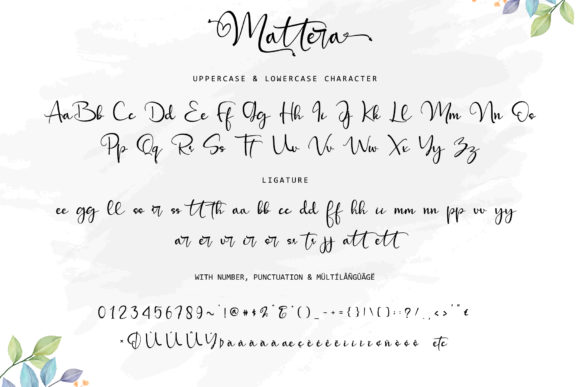 Mattera
UPPERCASE & LOWERCASE CHARACTER
AaBb Cc Dd Ee Ff Gg Hh Ii Jj Kk Ll Mm Nn Oo
Pp Qq Rr Ss Tt Uu Vv Ww Xx Yy Zz
LIGATURE
ee gg ll oo rr ss tt th aa bb cc dd ff hh ii mm nn pp vv yy
ar er ur ir or sr tr jj att ett
WITH NUMBER, PUNCTUATION & MÜLTÍLÂÑGÜÃGË
0123456789~`!@#$
etc